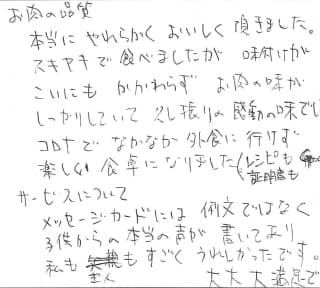 お肉の品質
本当に やわらかく おいしく 頂きました。
スキヤキで 食べましたが 味付けが
こいにも かかわらず お肉の味が
しっかりしていて 久し振りの 感動の味でし
コロナで なかなか 外食に 行けず
楽しい 食卓に なりました(レシピも
証明書も
サービスについて
メッセージカードには 例文ではなく
子供からの 本当の声が 書いてあり
私も もすごく うれしかったです。
主人
大大大満足で